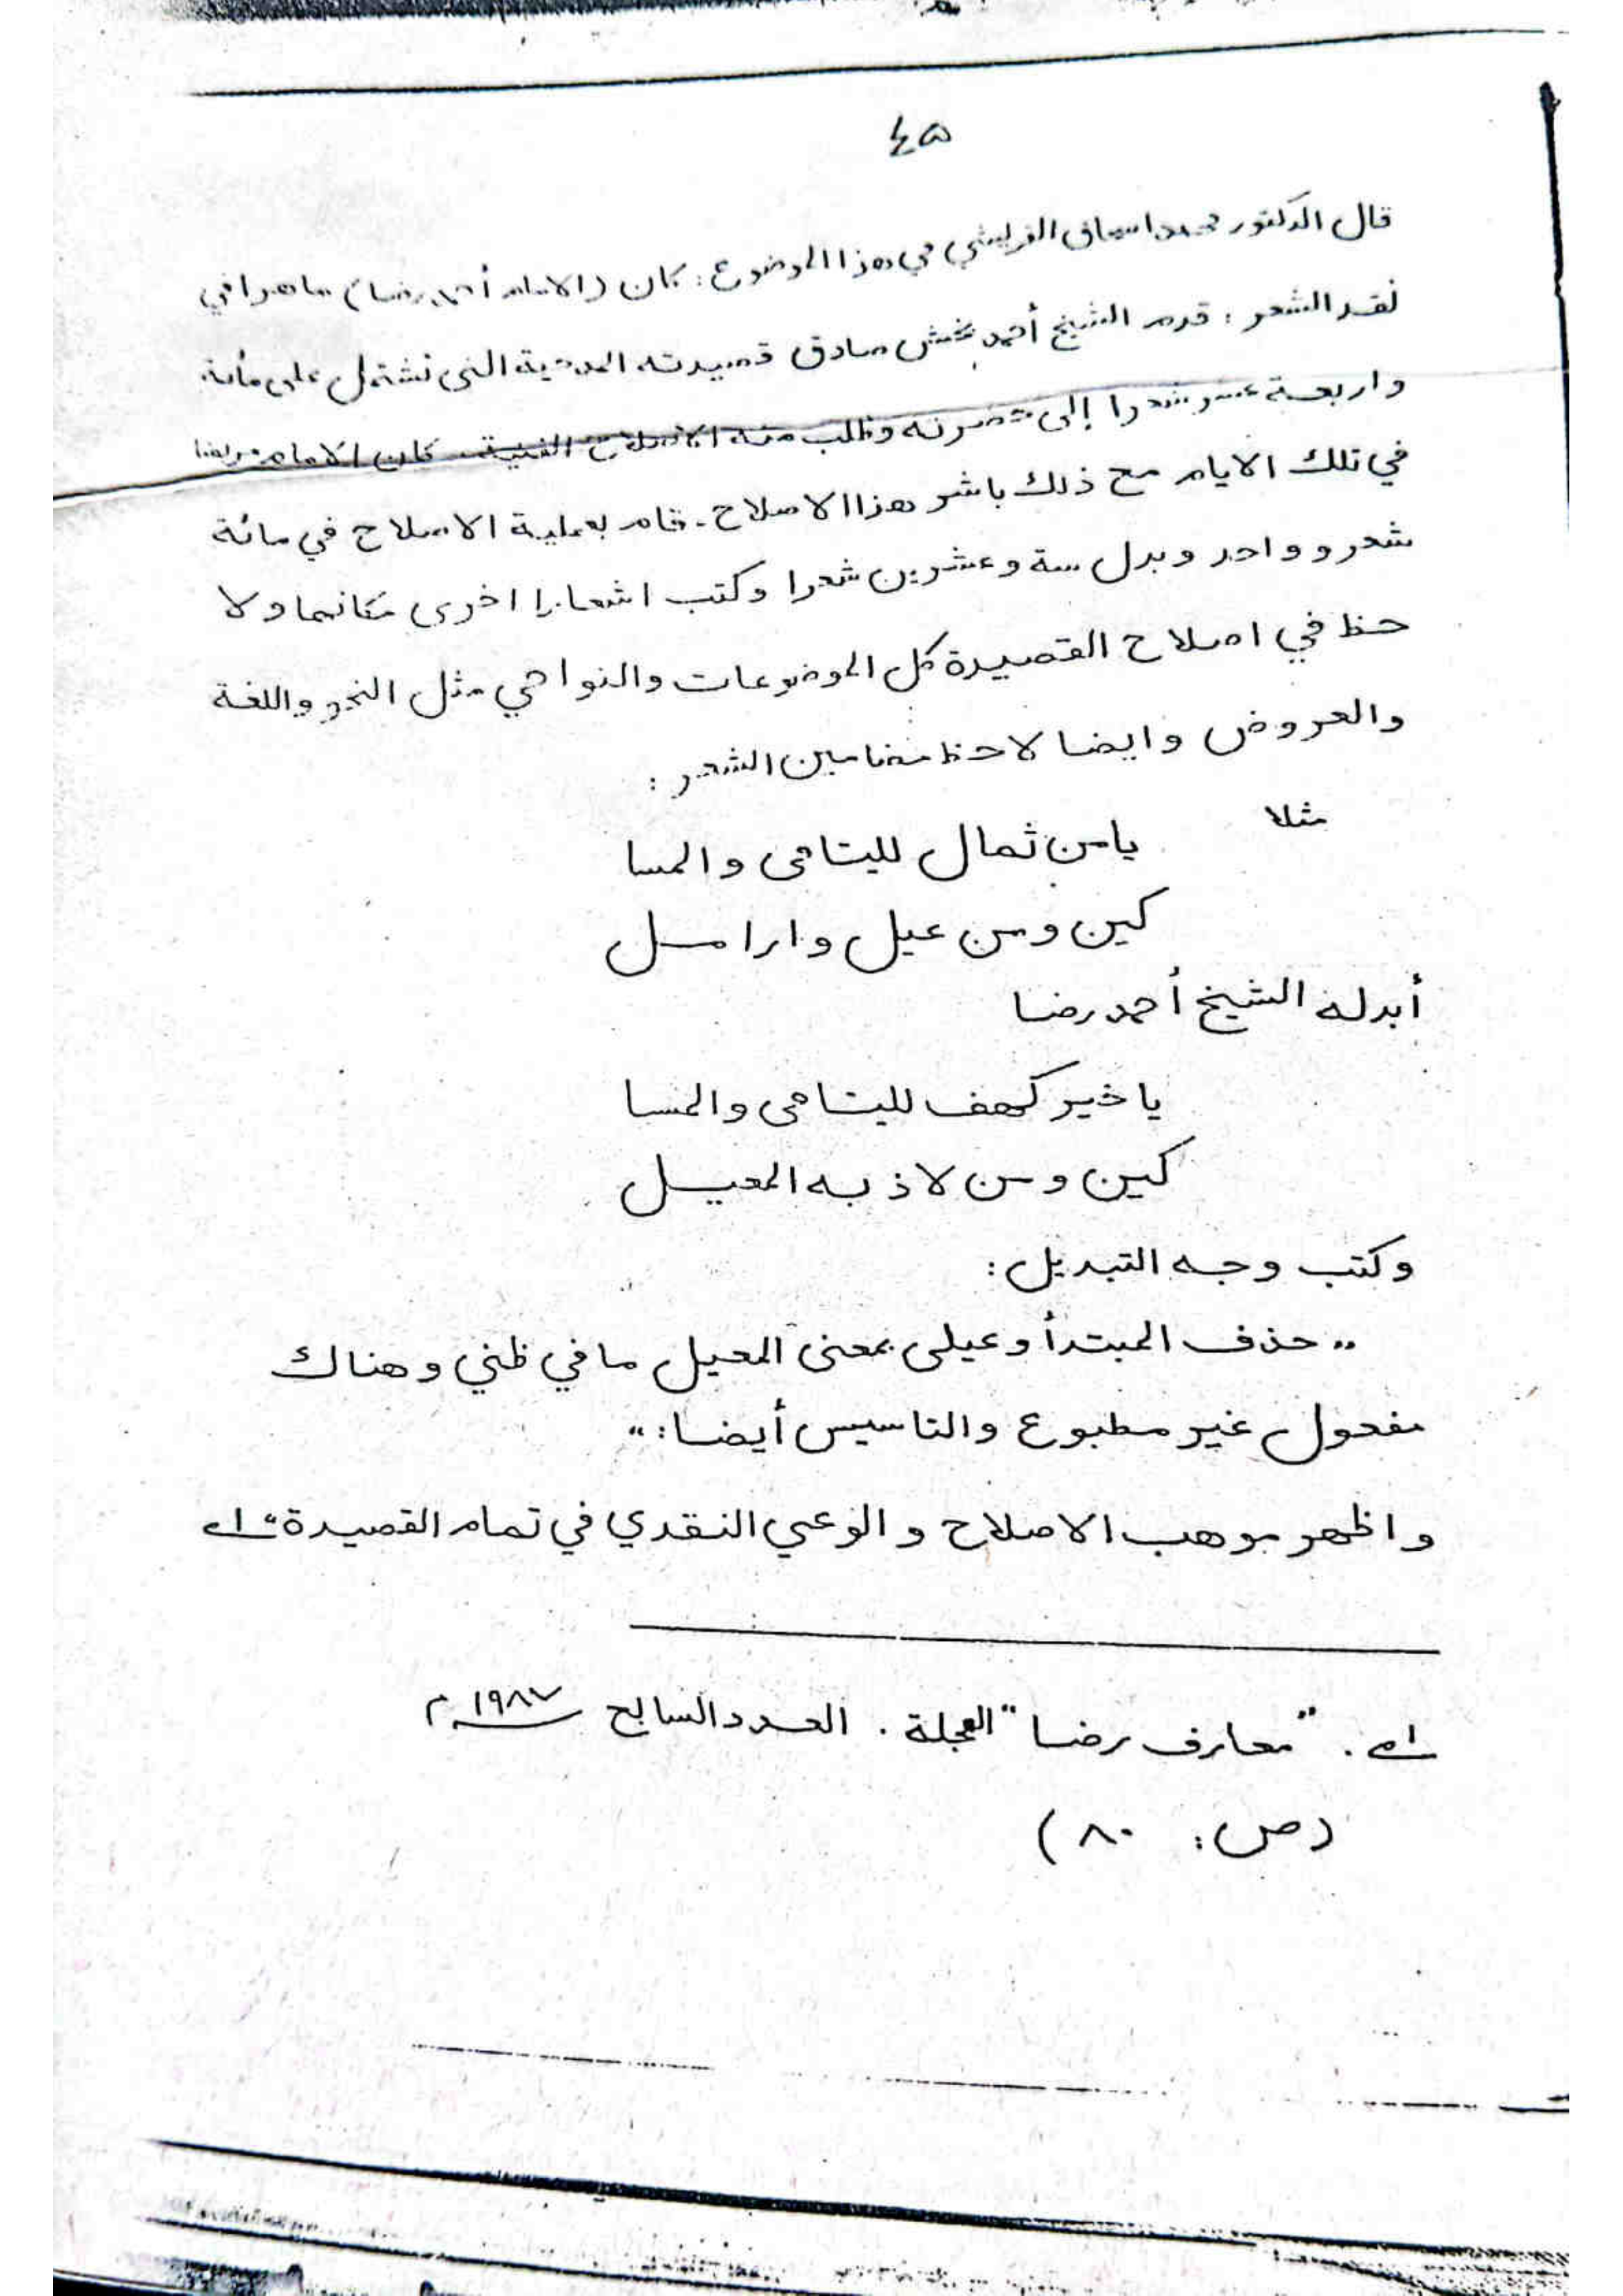 ٤٥
قال الدكتور محمد اسحاق القريشي في هذا الموضوع: كان (الامام أحمد رضا) ماهرا في
نقد الشعر: قدم الشيخ أحمد بخش صادق قصيدته المدحية التى تشتمل على مأئة
واربعة عشر شعرا إلى حضرته وطلب منه الاصلاح الفنية. كان الامام مريضا
في تلك الايام مع ذلك باشر هذا الاصلاح. قام بعملية الاصلاح في مائة
شعر وواحد وبدل ستة وعشرين شعرا وكتب اشعارا اخرى مكانهما ولا
حظ في اصلاح القصيدة كل الموضوعات والنواحي مثل النحو واللغة
والعروض وايضا لاحظ مضامين الشعر:
مثلا يا من ثمال لليتامى والمسا
كين ومن عيل وارامل
أبدله الشيخ أحمد رضا
يا خير كهف لليتامى والمسا
كين ومن لاذ به المعيل
وكتب وجه التبديل:
"حذف المبتدأ وعيلى بمعنى المعيل ما في ظني وهناك
مفعول غير مطبوع والتاسيس أيضا:"
واظهر موهب الاصلاح والوعي النقدي في تمام القصيدة" ا؎
ا؎. "معارف رضا" المجلة. العدد السابع ١٩٨٧م
(ص: ٨٠)